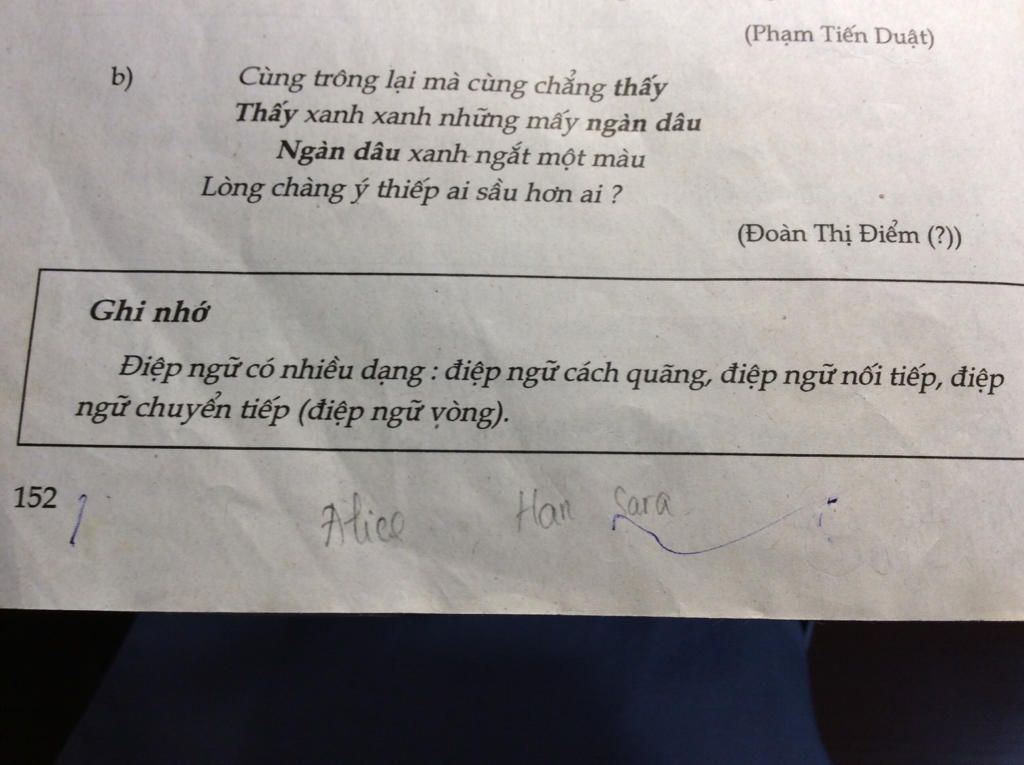 (Phạm Tiến Duật)
b) Cùng trông lại mà cùng chẳng thấy
Thấy xanh xanh những mấy ngàn dâu
Ngàn dâu xanh ngắt một màu
Lòng chàng ý thiếp ai sầu hơn ai ?
(Đoàn Thị Điểm (?))
Ghi nhớ
Điệp ngữ có nhiều dạng : điệp ngữ cách quãng, điệp ngữ nối tiếp, điệp
ngữ chuyển tiếp (điệp ngữ vòng).
152
Alice Han Sara